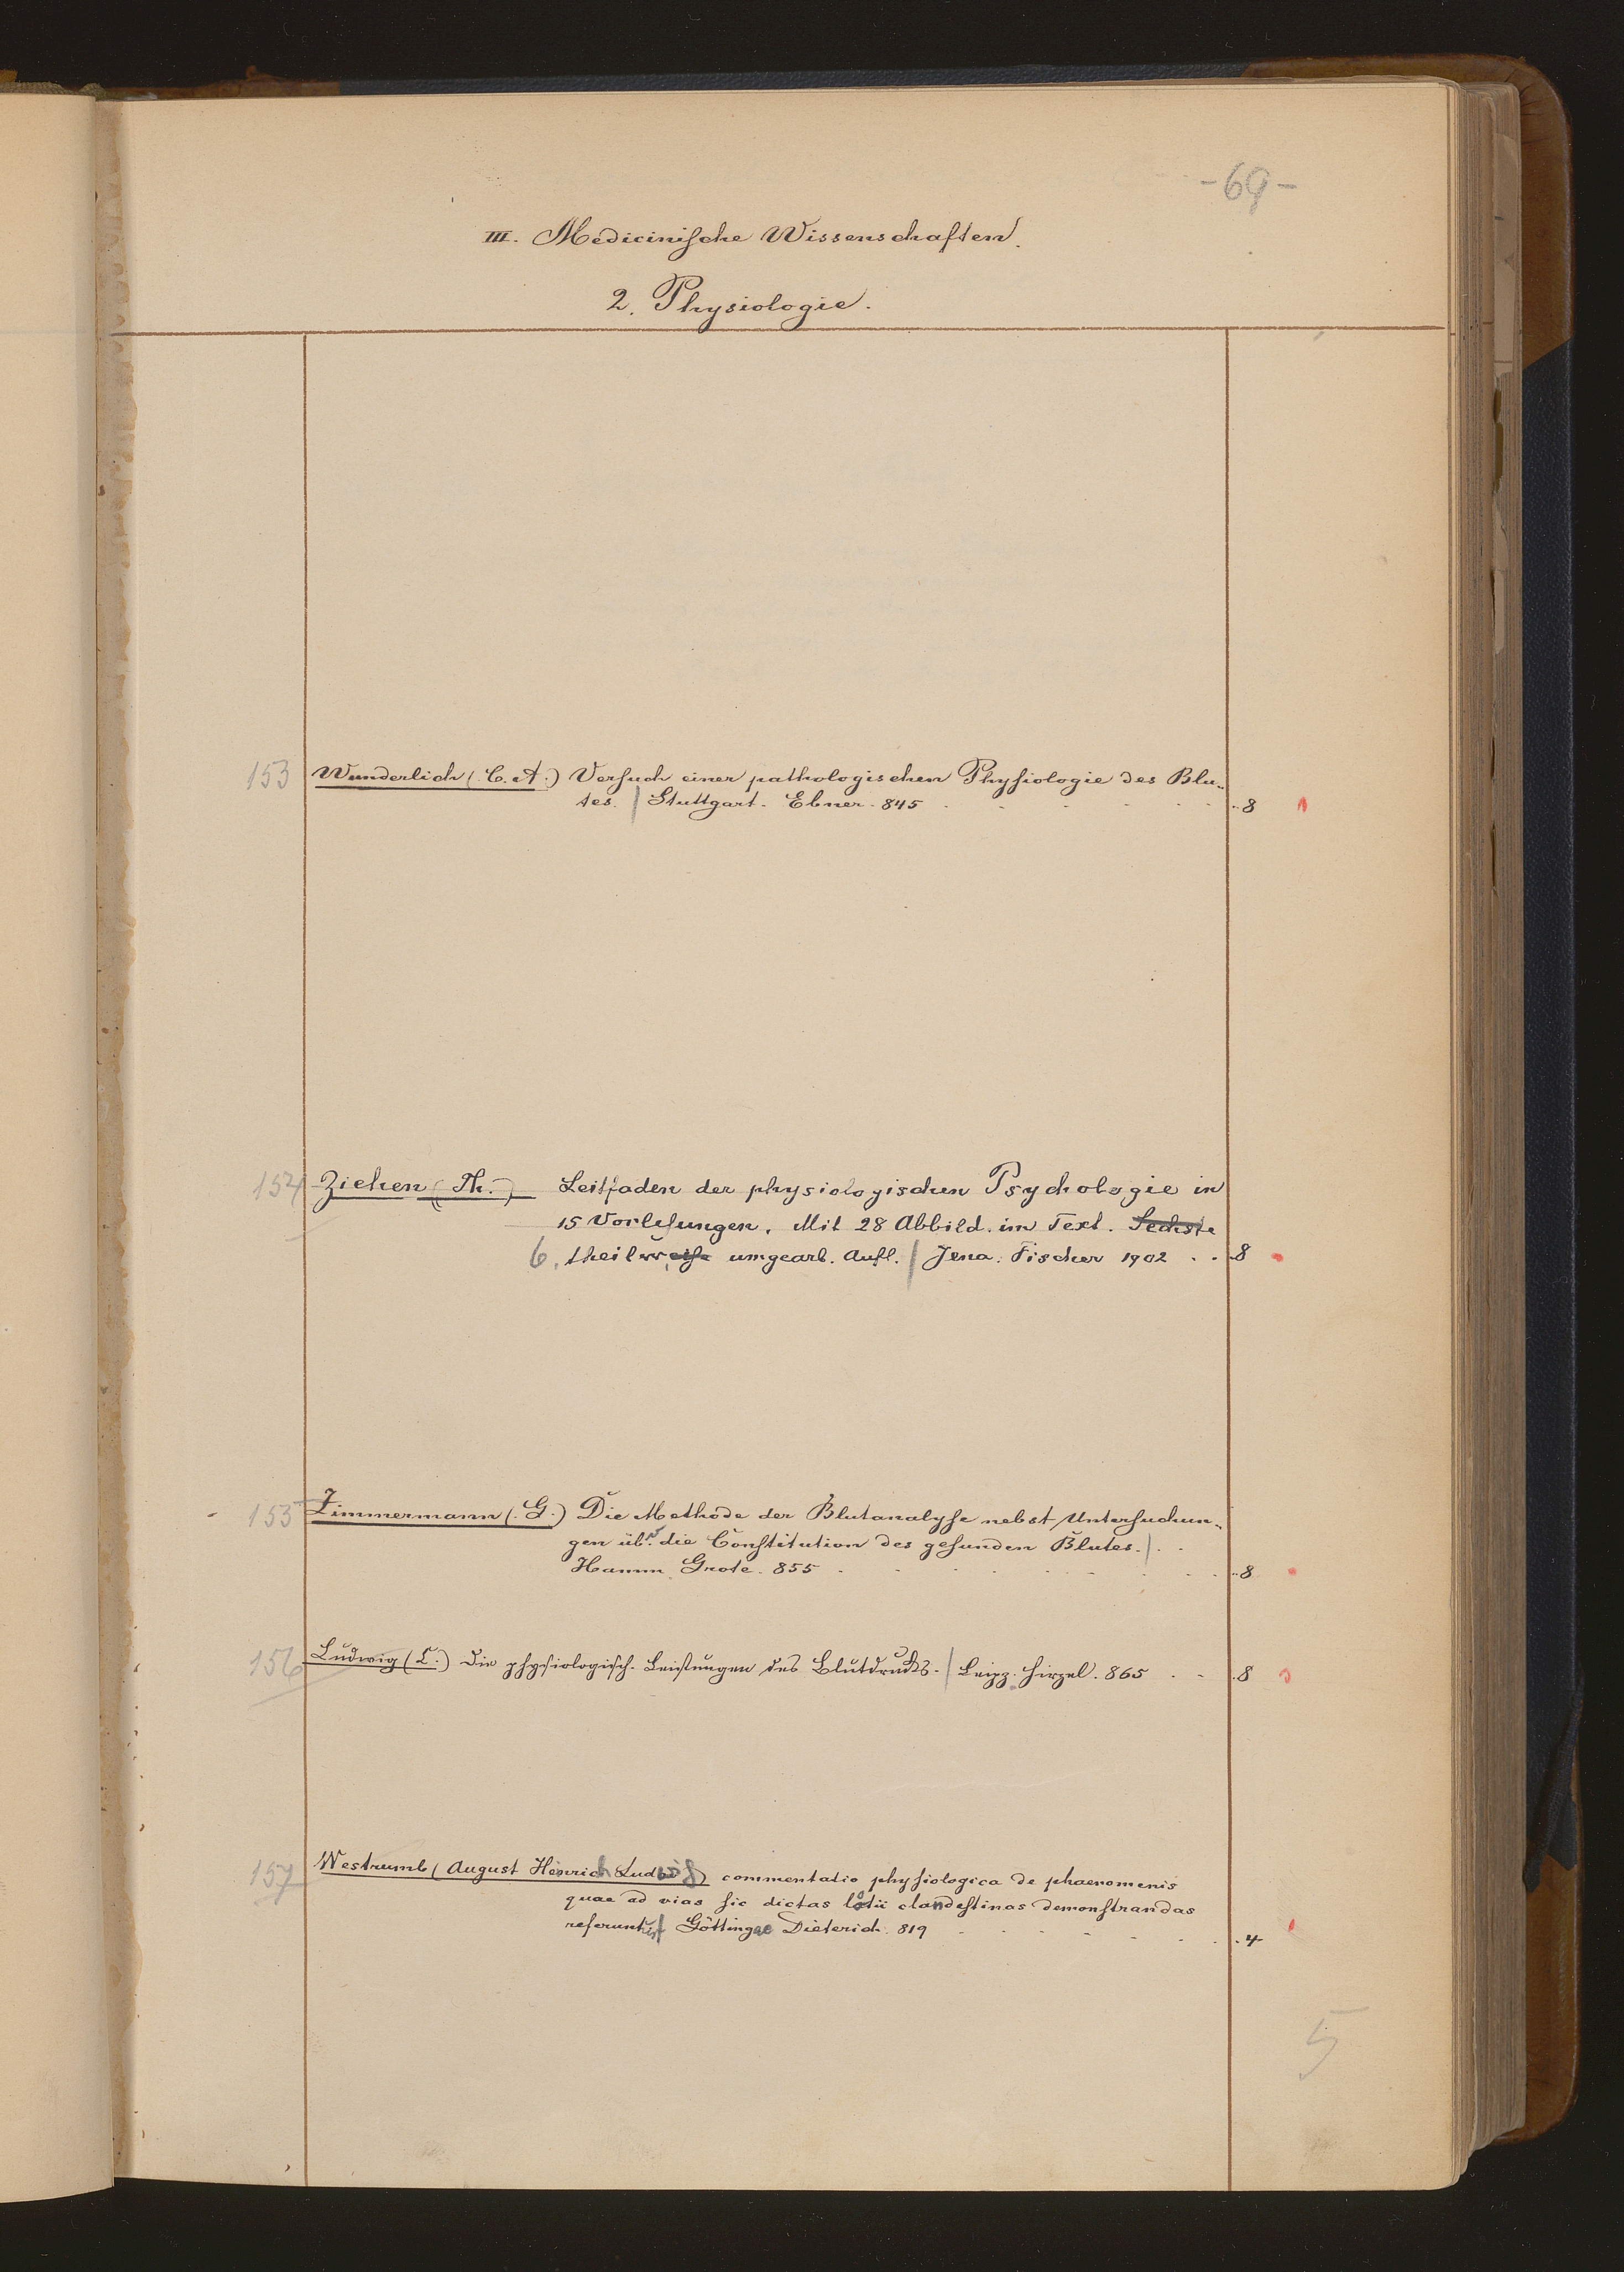 -69-
III. Medicinische Wissenschaften.
2. Physiologie.
153 Wunderlich (C. A.) Versuch einer pathologischen Physiologie des Blu-
tes. | Stuttgart. Ebner. 845 . . . . . . 8
154 Ziehen (Th.) Leitfaden der physiologischen Psychologie in
15 Vorlesungen. Mit 28 Abbild. im Text. Sechste
6. theilweise umgearb. Aufl. | Jena. Fischer 1902 . . 8
155 Zimmermann (G.) Die Methode der Blutanalyse nebst Untersuchun-
gen üb. die Constitution des gesunden Blutes. | . .
Hamm. Grote. 855 . . . . . . . . 8
156 Ludwig (C.) Die physiologisch. Leistungen des Blutdrucks. | Leipz. Hirzel. 865 . . 8
157 Westrumb (August Heinrich Ludwig) commentatio physiologica de phaenomenis
quae ad vias sic dictas lotii clandestinas demonstrandas
referuntur | Göttingae Dieterich. 819 . . . . . . 4
5